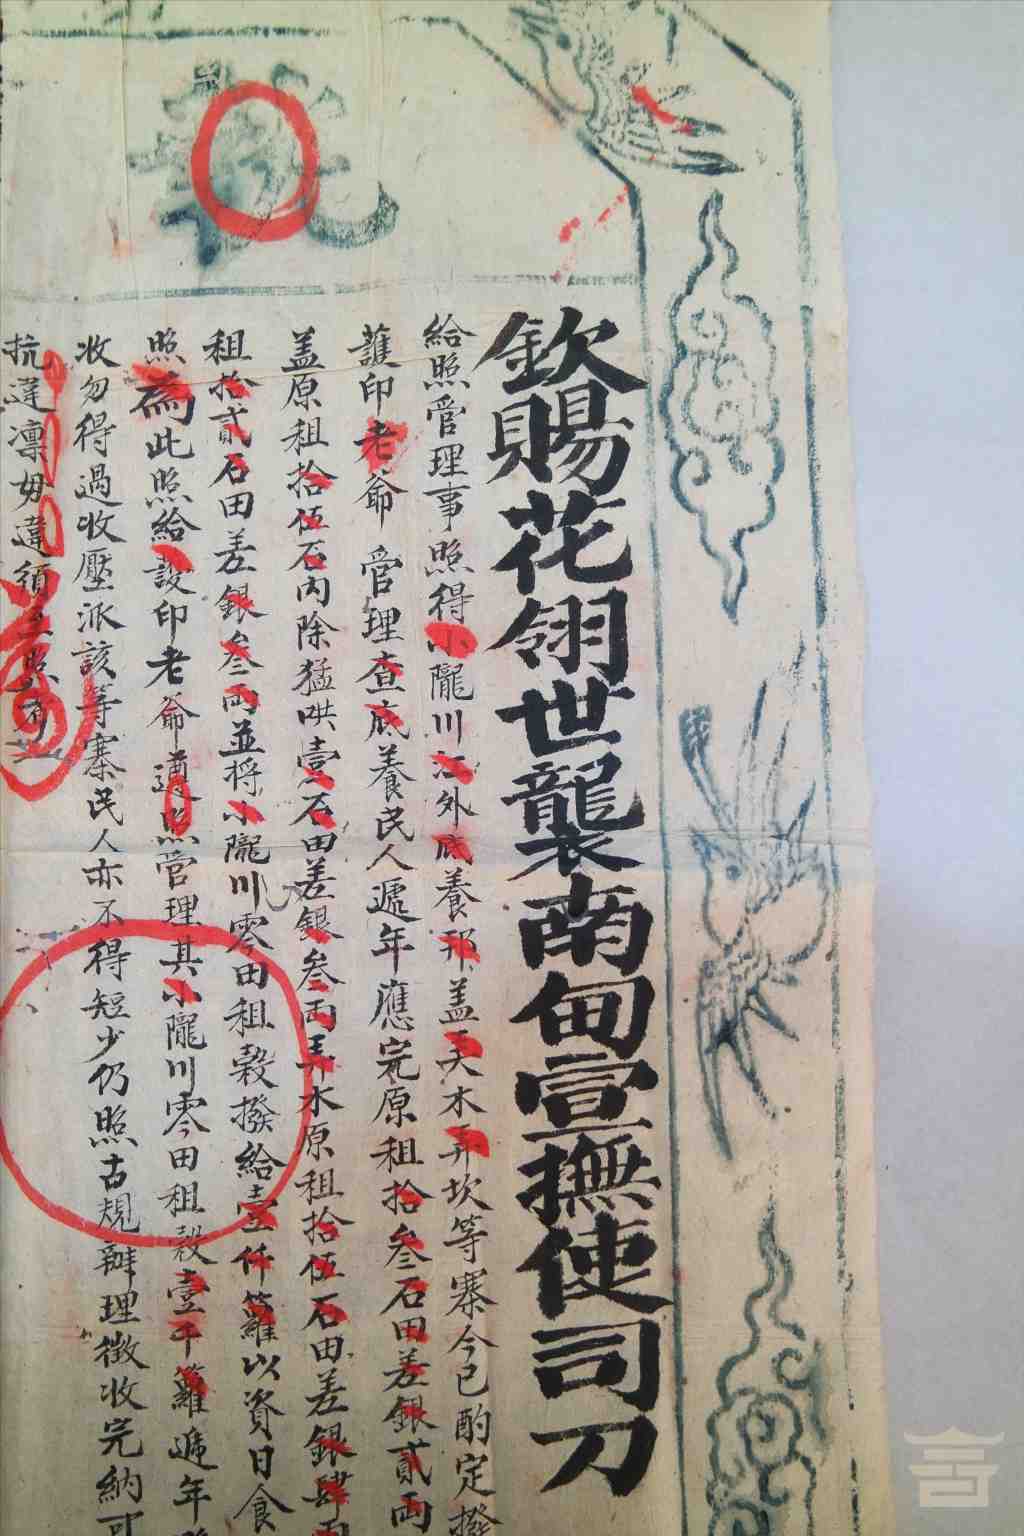 執
欽賜花翎世襲南甸宣撫使司刀
給照管理事照得小隴川江外底養邦盖天木弄坎等寨今已酌定撥
護印老爺 管理查底養民人遞年應完原租拾叁石田差銀貳両
盖原租拾伍石內除猛哄壹石田差銀叁両弄水原租拾伍石田差銀肆両
租拾貳石田差銀叁両並将小隴川零田租穀撥給壹仟籮以資日食
照為此照給護印老爺遵照管理其小隴川零田租穀壹千籮遞年
收勿得過收壓派該等寨民人亦不得短少仍照古規辦理徵收完納可
抗違凛毋違須至照者